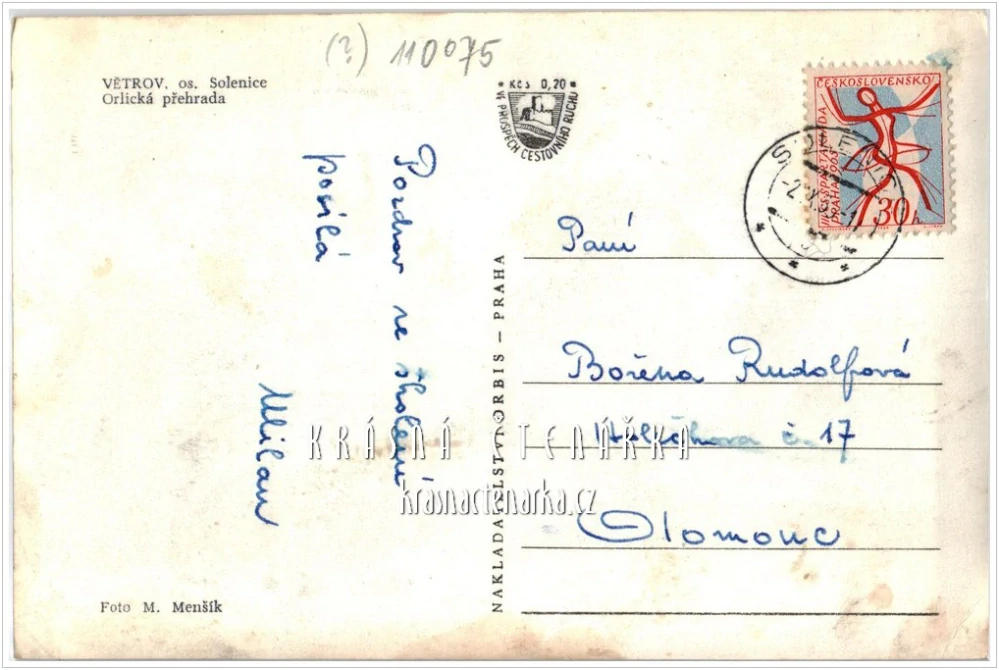 (?) 110075
VĚTROV, os. Solenice
Orlická přehrada
Kčs 0,20
VE PROSPĚCH CESTOVNÍHO RUCHU
ČESKOSLOVENSKO
SPARTAKIÁDA
PRAHA 1965
30 h
Pozdrav ze školení
posílá
Milan
NAKLADATELSTVÍ ORBIS – PRAHA
Paní
Božena Rudolfová
č. 17
Olomouc
KRÁSNÁ ČTENÁŘKA
krasnactenarka.cz
Foto M. Menšík